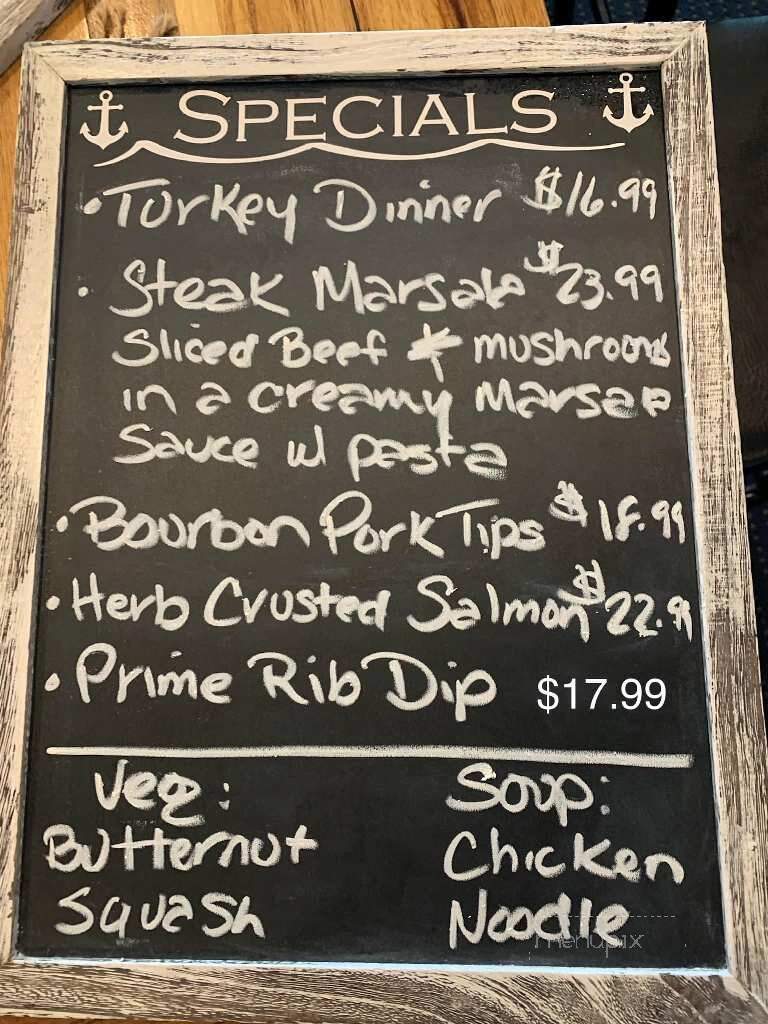 SPECIALS
• Turkey Dinner $16.99
• Steak Marsala $23.99
Sliced Beef & mushrooms
in a creamy Marsala
Sauce w/ pasta
• Bourbon Pork Tips $18.99
• Herb Crusted Salmon $22.99
• Prime Rib Dip $17.99
Veg:
Butternut
Squash
Soup:
Chicken
Noodle
menupix